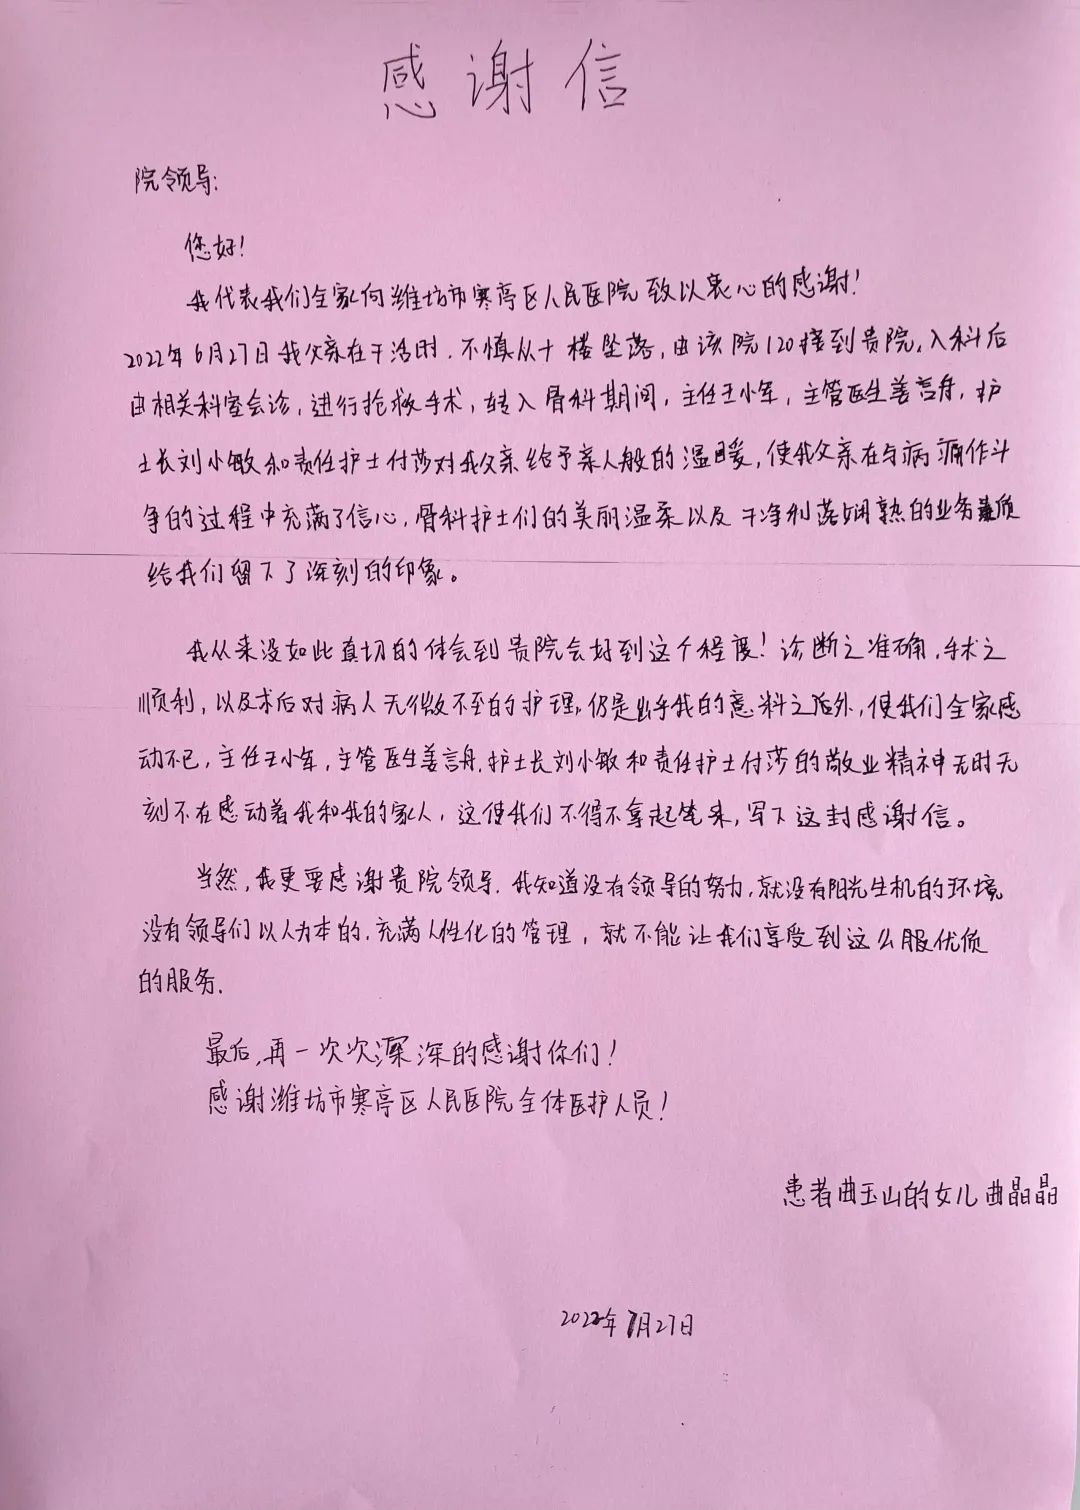 感谢信
院领导:
您好!
我代表我们全家向潍坊市寒亭区人民医院致以衷心的感谢!
2022年6月27日我父亲在干活时.不慎从十楼坠落,由该院120接到贵院,入科后
由相关科室会诊,进行抢救手术,转入骨科期间,主任王小军,主管医生姜言舟,护
士长刘小敏和责任护士付莎对我父亲给予亲人般的温暖,使我父亲在与病痛作斗
争的过程中充满了信心,骨科护士们的美丽温柔以及干净利落娴熟的业务素质
给我们留下了深刻的印象。
我从来没如此真切的体会到贵院会好到这个程度!诊断之准确,手术之
顺利,以及术后对病人无微不至的护理,仍是出乎我的意料之后外,使我们全家感
动不已,主任王小军,主管医生姜言舟,护士长刘小敏和责任护士付莎的敬业精神无时无
刻不在感动着我和我的家人,这使我们不得不拿起笔来,写下这封感谢信。
当然,我更要感谢贵院领导.我知道没有领导的努力,就没有阳光生机的环境
没有领导们以人为本的,充满人性化的管理,就不能让我们享受到这么服优质
的服务.
最后,再一次次深深的感谢你们!
感谢潍坊市寒亭区人民医院全体医护人员!
患者曲玉山的女儿曲晶晶
2022年7月27日